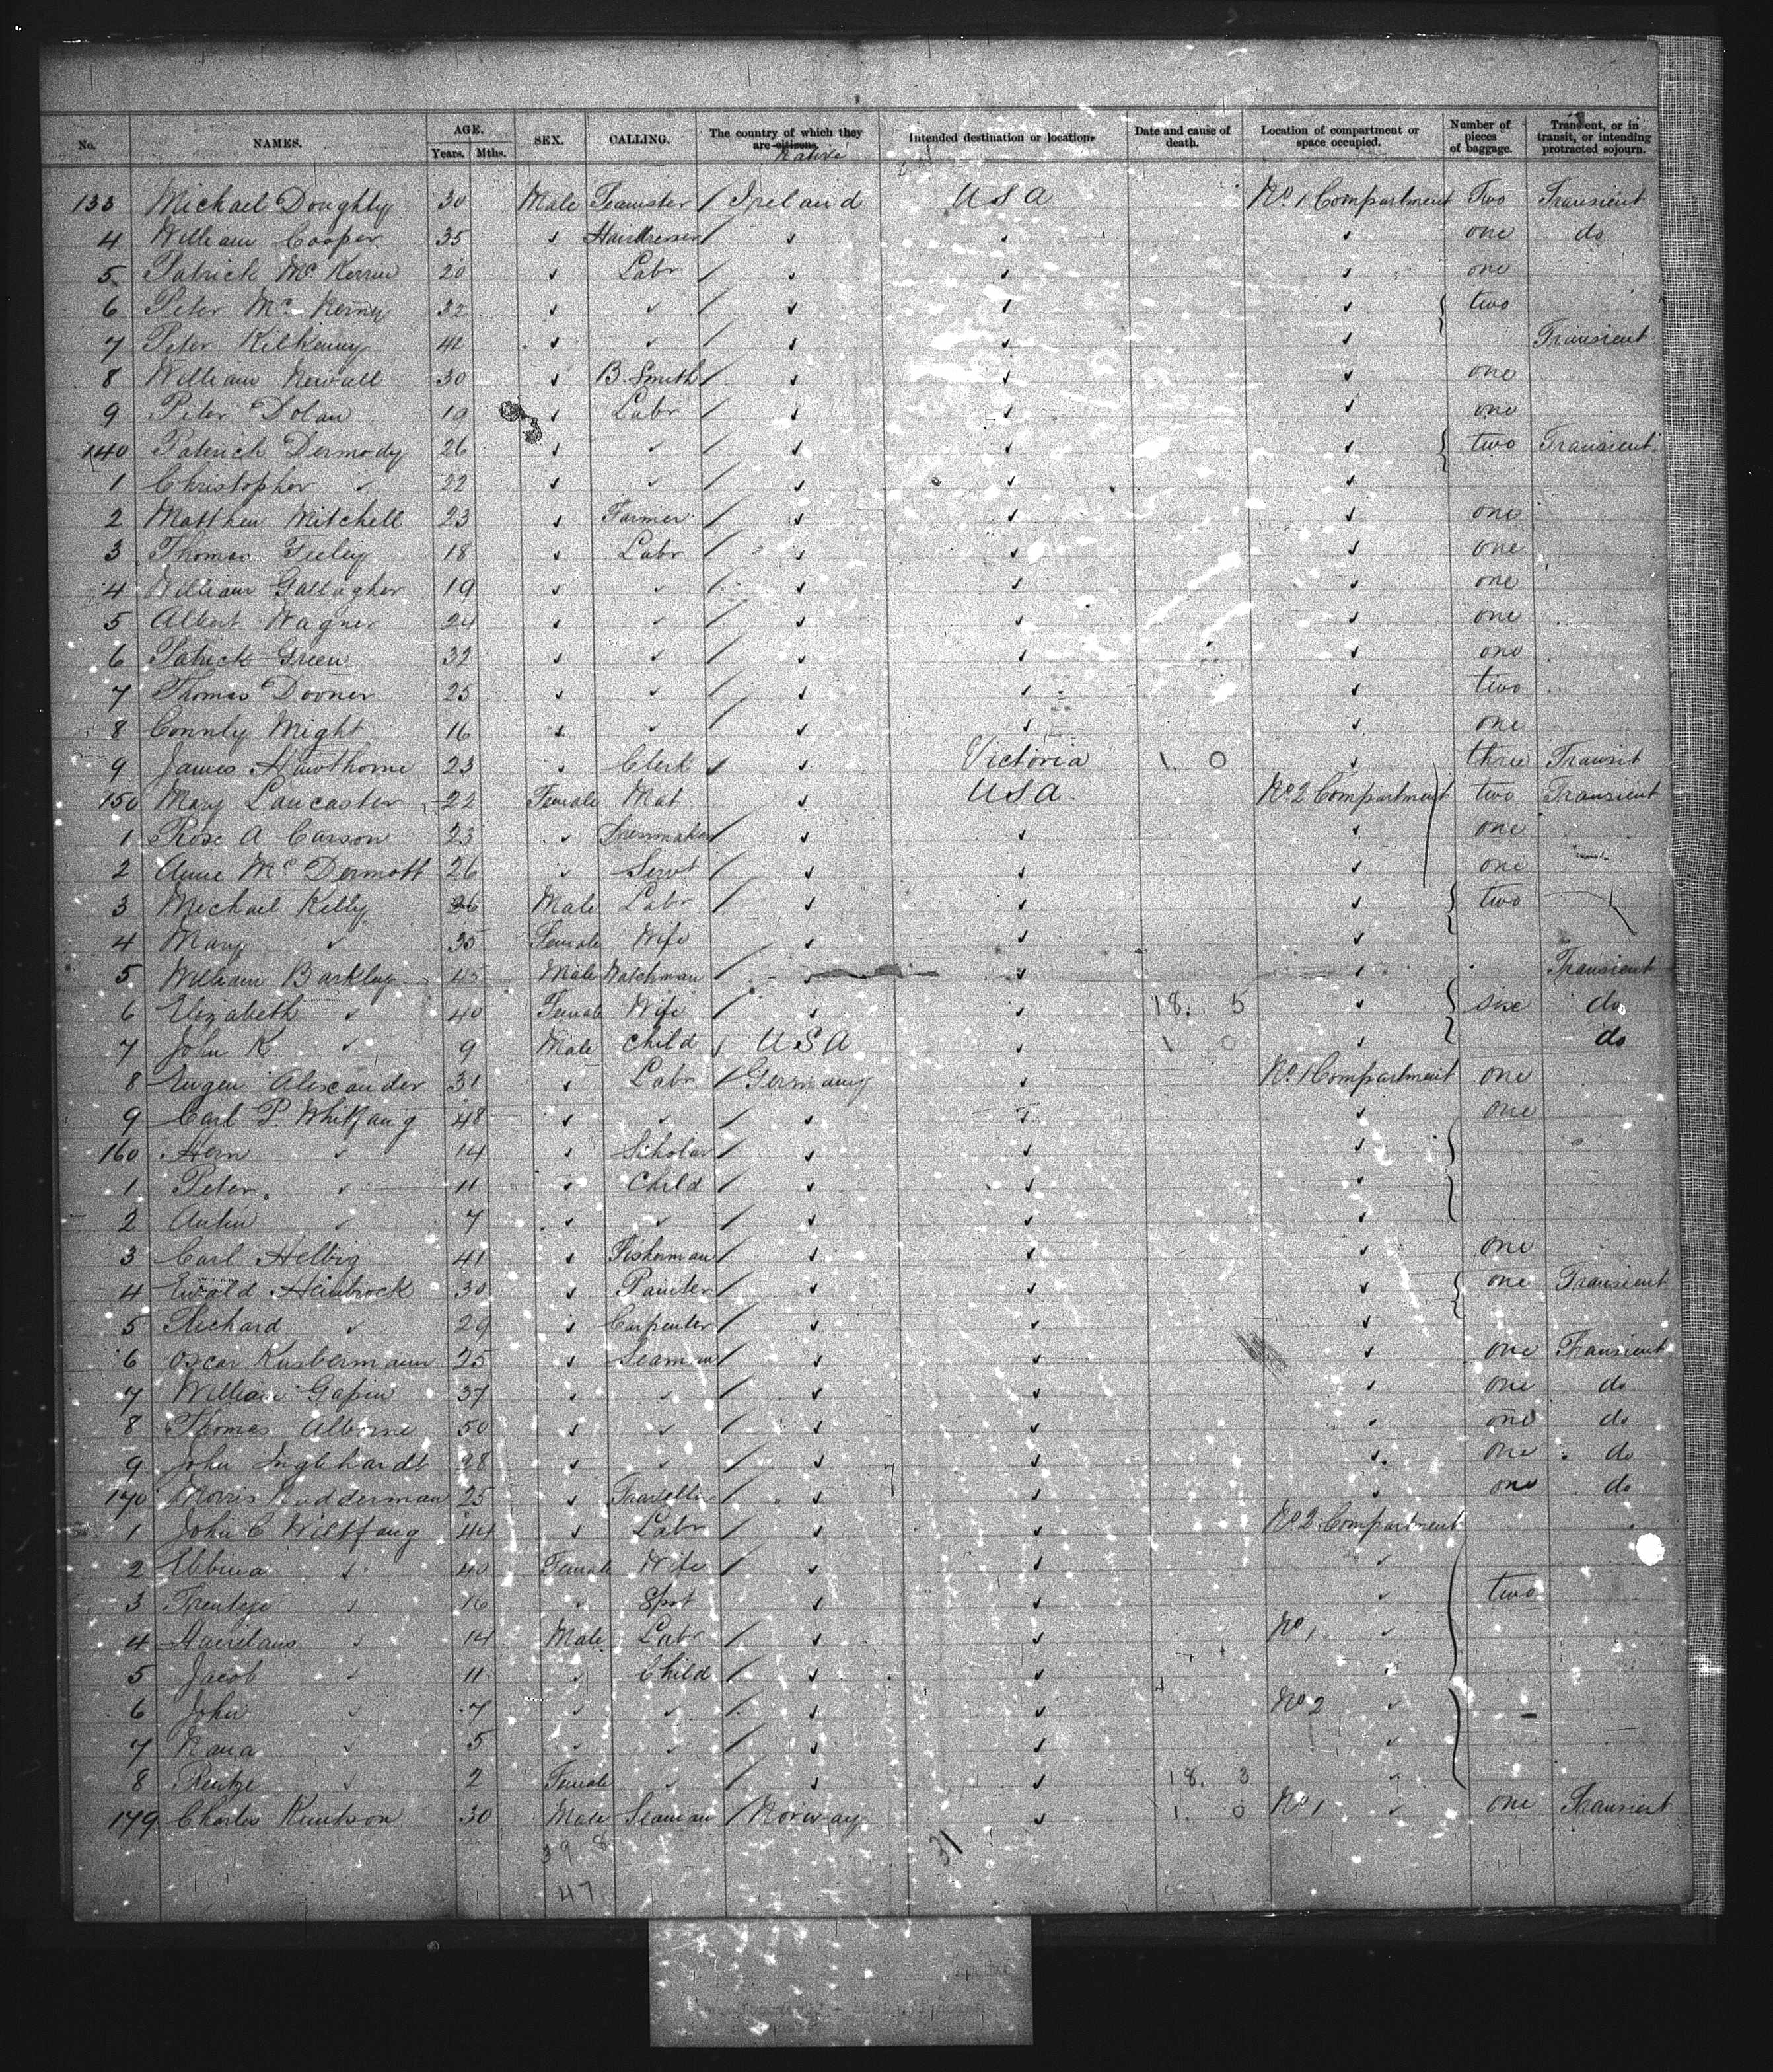 No. NAMES. AGE. Years. Mths. SEX. CALLING. The country of which they are citizens. Native Intended destination or locations Date and cause of death. Location of compartment or space occupied. Number of pieces of baggage. Transient, or in transit, or intending protracted sojourn.
133 Michael Doughty 30 Male Teamster / Ireland USA No. 1 Compartment Two Transient
4 William Cooper 35 ✓ / ✓ ✓ ✓ one do
5 Patrick Mc 20 ✓ Labr / ✓ ✓ ✓ one
6 Peter Mc Nerney 32 ✓ ✓ / ✓ ✓ ✓ two
7 Peter Kilkenny 42 ✓ ✓ / ✓ ✓ ✓ Transient
8 William Newall 30 ✓ B. Smith / ✓ ✓ ✓ one
9 Peter Dolan 19 ✓ Labr / ✓ ✓ ✓ one
140 Patrick Dermody 26 ✓ ✓ / ✓ ✓ ✓ two Transient
1 Christopher ✓ 22 ✓ ✓ / ✓ ✓ ✓
2 Matthew Mitchell 23 ✓ Farmer / ✓ ✓ ✓ one
3 Thomas Feeley 18 ✓ Labr / ✓ ✓ ✓ one
4 William Gallagher 19 ✓ ✓ / ✓ ✓ ✓ one
5 Albert Wagner 24 ✓ ✓ / ✓ ✓ ✓ one
6 Patrick Green 32 ✓ ✓ / ✓ ✓ ✓ one
7 Thomas Dooner 25 ✓ ✓ / ✓ ✓ ✓ two
8 Connly Might 16 ✓ ✓ / ✓ ✓ ✓ one
9 James Hawthorne 23 ✓ Clerk ✓ ✓ Victoria 1 0 ✓ three Transit
150 Mary Lancaster 22 Female Mat ✓ USA. No. 2 Compartment two Transient
1 Rose A Carson 23 ✓ Dressmaker / ✓ ✓ ✓ one
2 Annie Mc Dermott 26 ✓ Servt / ✓ ✓ ✓ one
3 Michael Kelly 26 Male Labr / ✓ ✓ ✓ two
4 Mary ✓ 35 Female Wife / ✓ ✓ ✓
5 William Barkley 45 Male Watchman / ✓ ✓ Transient
6 Elizabeth ✓ 40 Female Wife / ✓ ✓ 18. 5 ✓ six do
7 John K ✓ 9 Male Child USA ✓ 1 0 ✓ do
8 Eugen Alexander 31 ✓ Labr / Germany ✓ No. 1 Compartment one
9 Carl P. Whitfang 48 ✓ ✓ / ✓ ✓ ✓ one
160 Hern ✓ 14 ✓ Scholar / ✓ ✓ ✓
1 Peter ✓ 11 ✓ Child / ✓ ✓ ✓
2 ✓ 7 ✓ ✓ / ✓ ✓ ✓
3 Carl Helbig 41 ✓ Fisherman / ✓ ✓ ✓ one
4 Ewald Heinbrock 30 ✓ Painter / ✓ ✓ ✓ one Transient
5 Richard ✓ 29 ✓ Carpenter / ✓ ✓ ✓
6 Oscar Kusbermann 25 ✓ Seaman / ✓ ✓ ✓ one Transient
7 William Gapin 37 ✓ ✓ / ✓ ✓ ✓ one do
8 Thomas 50 ✓ ✓ / ✓ ✓ ✓ one do
9 John Inglehardt 28 ✓ ✓ / ✓ ✓ ✓ one do
170 Morris 25 ✓ / ✓ ✓ ✓ one do
1 John C Wiltfang 44 ✓ Labr / ✓ ✓ No. 2 Compartment
2 ✓ 40 Female Wife / ✓ ✓ ✓
3 ✓ 16 ✓ Spst ✓ ✓ ✓ two
4 ✓ 14 Male Labr / ✓ ✓ No. 1 ✓
5 Jacob ✓ 11 ✓ Child / ✓ ✓ ✓
6 John ✓ 7 ✓ ✓ / ✓ ✓ No. 2 ✓
7 Nana ✓ 5 ✓ ✓ / ✓ ✓ ✓
8 ✓ 2 Female ✓ / ✓ ✓ 18. 3 ✓
179 Charles Knutson 30 Male Seaman / Norway ✓ 1. 0 No. 1 ✓ one Transient
39. 8 31
47